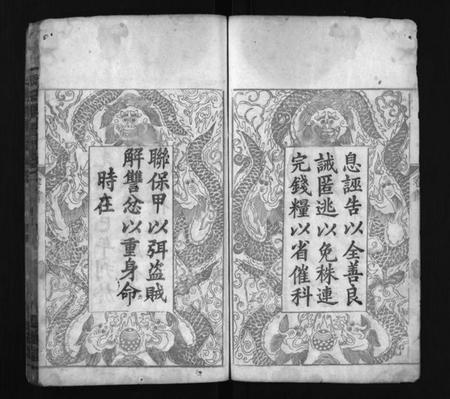 息誣告以全善良
誡匿逃以免株連
完錢糧以省催科
聯保甲以弭盜賊
解讐忿以重身命
時在